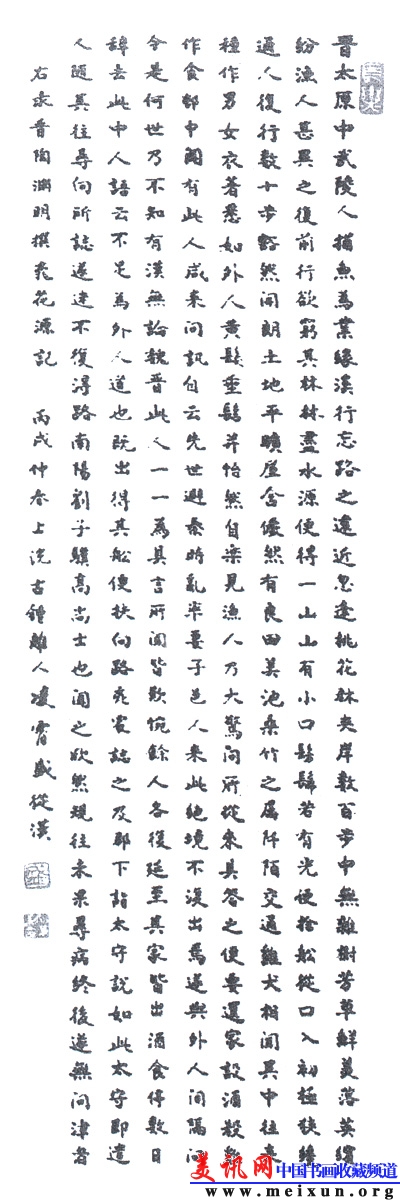 晉太原中武陵人捕魚為業緣溪行忘路之遠近忽逢桃花林夾岸數百步中無雜樹芳草鮮美落英繽
紛漁人甚異之復前行欲窮其林林盡水源便得一山山有小口髣髴若有光便捨船從口入初極狹纔
通人復行數十步豁然開朗土地平曠屋舍儼然有良田美池桑竹之屬阡陌交通雞犬相聞其中往來
種作男女衣著悉如外人黃髮垂髫并怡然自樂見漁人乃大驚問所從來具答之便要還家設酒殺雞
作食邨中聞有此人咸來問訊自云先世避秦時亂率妻子邑人來此絕境不復出焉遂與外人間隔問
今是何世乃不知有漢無論魏晉此人一一為具言所聞皆歎惋餘人各復延至其家皆出酒食停數日
辭去此中人語云不足為外人道也既出得其船便扶向路處處誌之及郡下詣太守說如此太守即遣
人隨其往尋向所誌遂迷不復得路南陽劉子驥高尚士也聞之欣然規往未果尋病終後遂無問津者
右录晉陶淵明撰桃花源記 丙戌仲春上浣古鍾離人凌霄盛從漢
美讯网 中国书画收藏频道
www.meixun.org